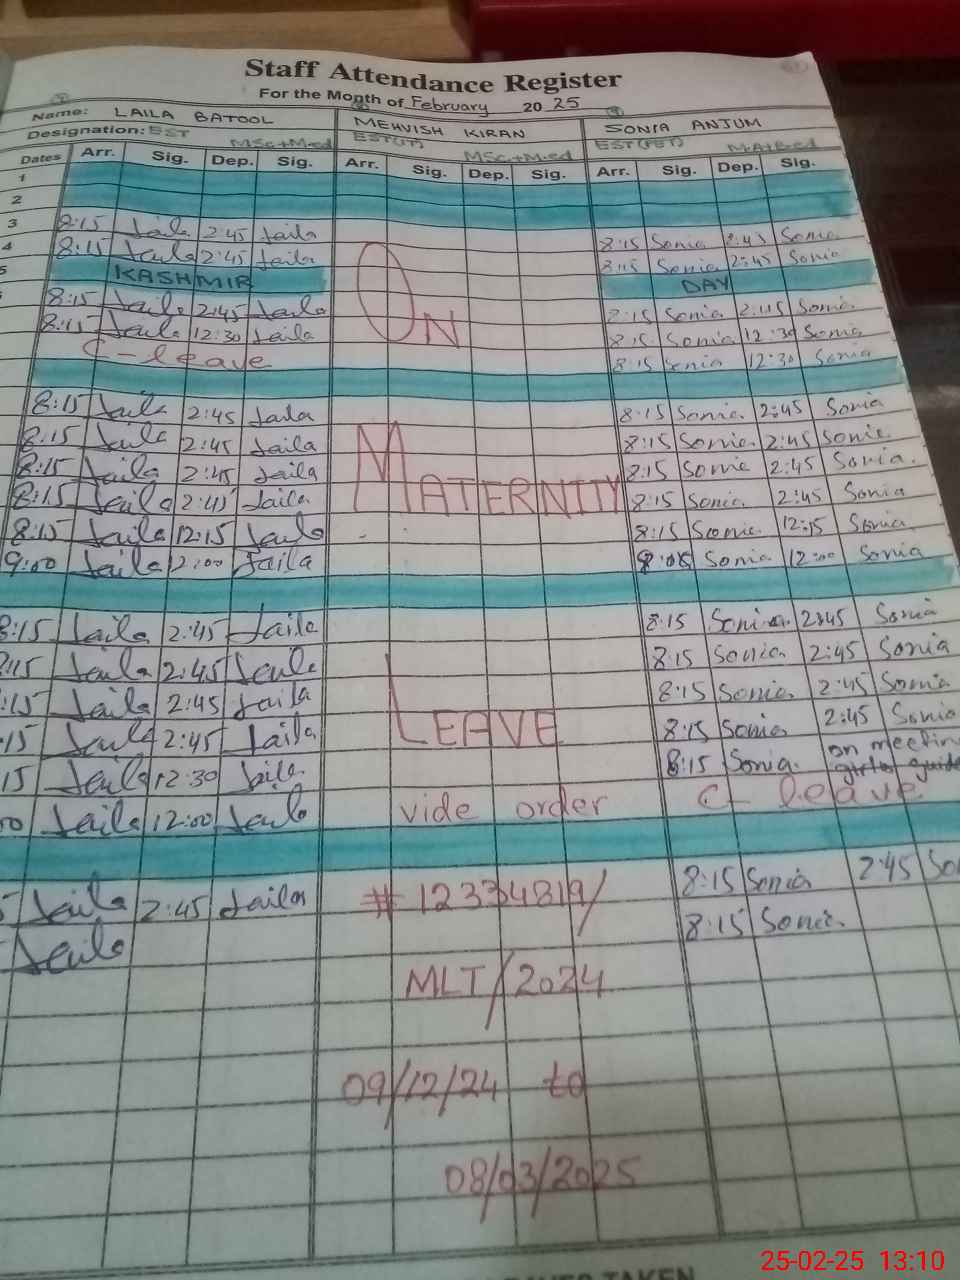 Staff Attendance Register
For the Month of February 2025
Name: LAILA BATOOL MEHVISH KIRAN SONIA ANJUM
Designation: EST MSc+M.ed EST(IT) MSc+M.ed EST(PET) M.A+B.ed
Dates Arr. Sig. Dep. Sig. Arr. Sig. Dep. Sig. Arr. Sig. Dep. Sig.
1
2
3 8:15 Laila 2:45 Laila 8:15 Sonia 2:45 Sonia
4 8:15 Laila 2:45 Laila 8:15 Sonia 2:45 Sonia
5 KASHMIR DAY
8:15 Laila 2:45 Laila 8:15 Sonia 2:45 Sonia
8:15 Laila 12:30 Laila ON 8:15 Sonia 12:30 Sonia
C-leave 8:15 Sonia 12:30 Sonia
8:15 Laila 2:45 Laila 8:15 Sonia 2:45 Sonia
8:15 Laila 2:45 Laila 8:15 Sonia 2:45 Sonia
8:15 Laila 2:45 Laila 8:15 Sonia 2:45 Sonia.
8:15 Laila 2:45 Laila MATERNITY 8:15 Sonia 2:45 Sonia
8:15 Laila 12:15 Laila 8:15 Sonia 12:15 Sonia
9:00 Laila 12:00 Laila Sonia 12:00 Sonia
8:15 Laila 2:45 Laila 8:15 Sonia 2:45 Sonia
8:15 Laila 2:45 Laila 8:15 Sonia 2:45 Sonia
:15 Laila 2:45 Laila 8:15 Sonia 2:45 Sonia
15 Laila 2:45 Laila LEAVE 8:15 Sonia 2:45 Sonia
15 Laila 12:30 Laila 8:15 Sonia. on meeting girls guide
00 Laila 12:00 Laila vide order C-leave
5 Laila 2:45 Laila # 12334819/ 8:15 Sonia 2:45 So
Laila 8:15 Sonia
MLT/2024
09/12/24 to
08/03/2025
25-02-25 13:10